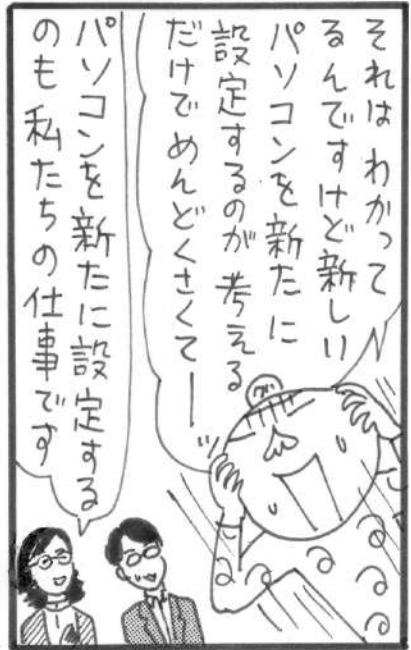 それは わかって
るんですけど新しい
パソコンを新たに
設定するのが 考える
だけで めんどくさくてー
パソコンを新たに設定する
のも 私たちの仕事です